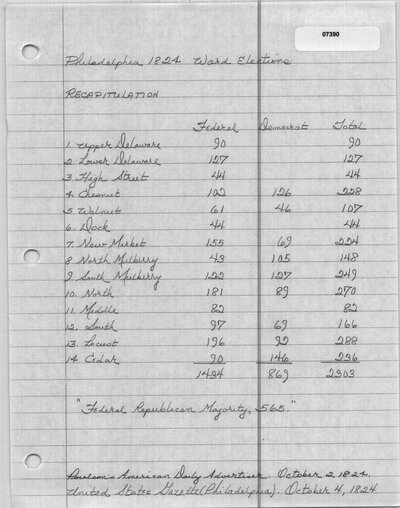 07390
Philadelphia 1824 Ward Elections
RECAPITULATION
Federal Democrat Total
1. Upper Delaware 90 90
2. Lower Delaware 127 127
3. High Street 44 44
4. Chesnut 102 126 228
5. Walnut 61 46 107
6. Dock 44 44
7. New Market 155 69 224
8 North Mulberry 43 105 148
9 South Mulberry 122 127 249
10. North 181 89 270
11. Middle 82 82
12. South 97 69 166
13. Locust 196 92 288
14. Cedar 90 146 236
1434 869 2303
"Federal Republican Majority, 565."
Poulson's American Daily Advertiser. October 2, 1824.
United States Gazette (Philadelphia). October 4, 1824